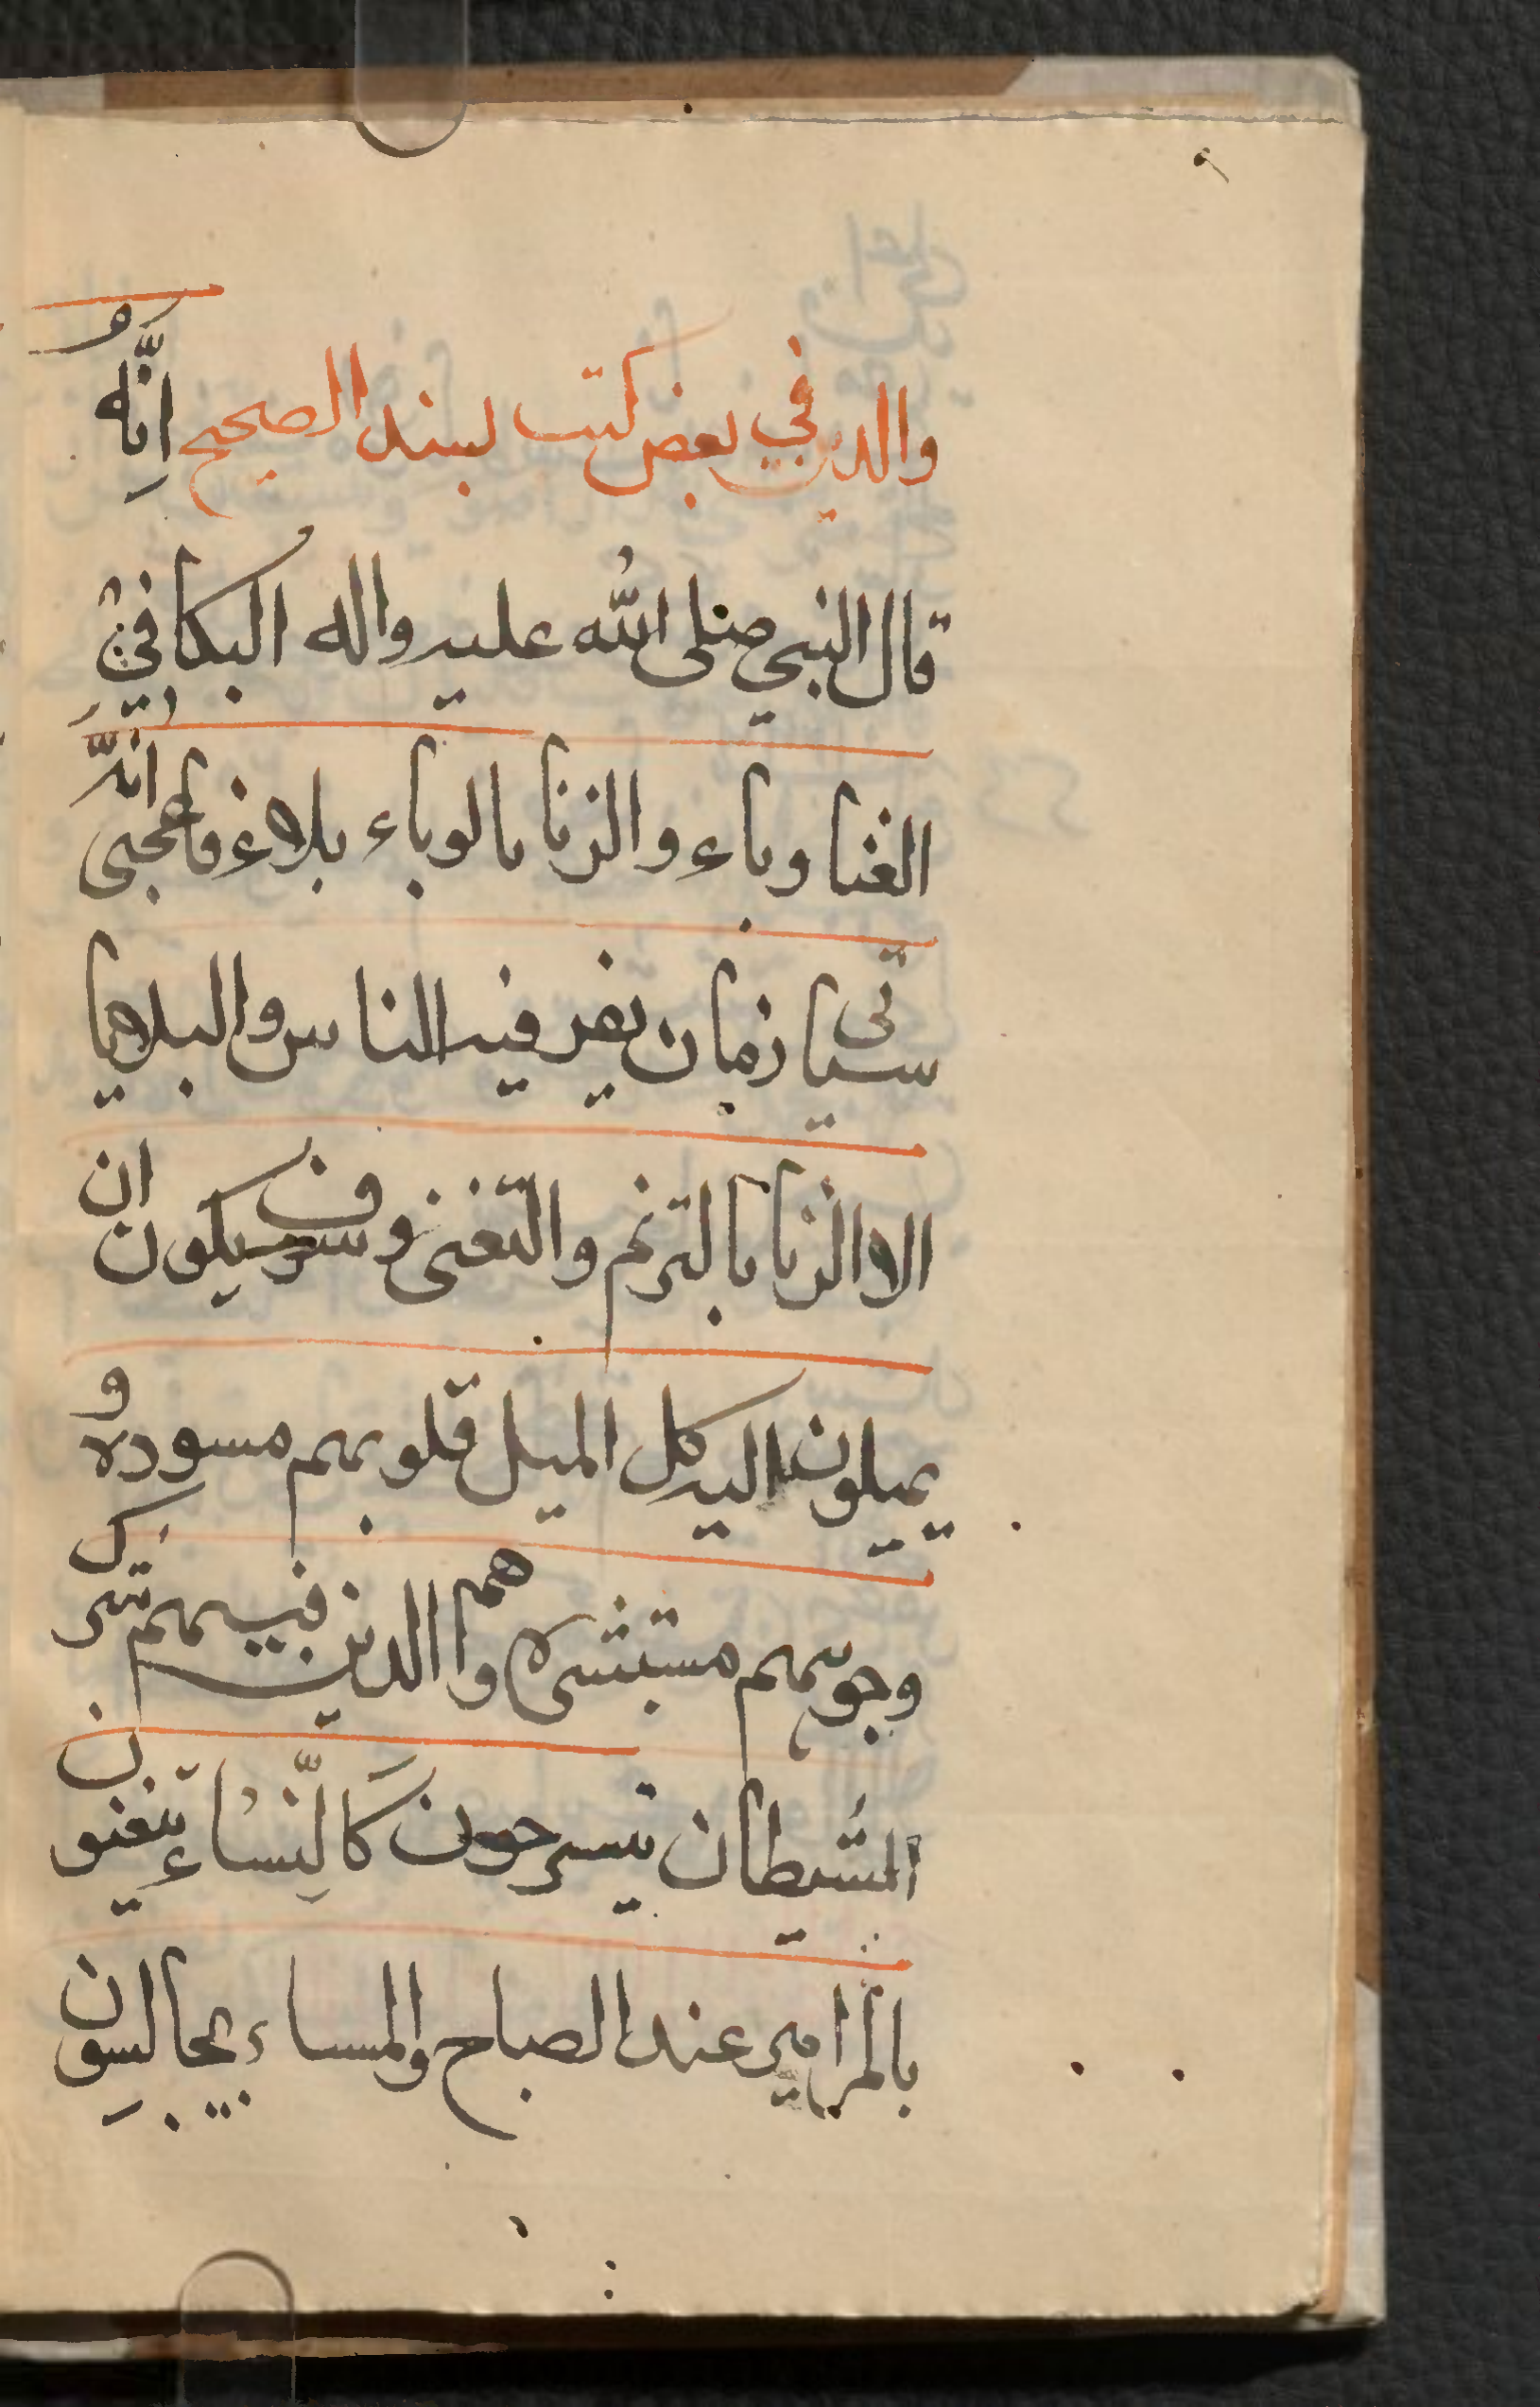 والدين في بعض كتب لبسند الصحيح انّه
قال النبي صلى الله عليه واله البكا في
الغنا وباء والزنا بالوباء بلاء فاعجبى انه
سياتى زمان يفر فيه الناس والبلاهيا
الا والزنا بالترنم والتغنى وسوف يكون ان
يميلون اليه كل الميل قلوبهم مسوده و
وجوههم مستبشره واهم الذين فيهم شرك
الشيطان يتسرحون كالنّساء يتغنون
بالمزامير عند الصباح والمساء يجالسون